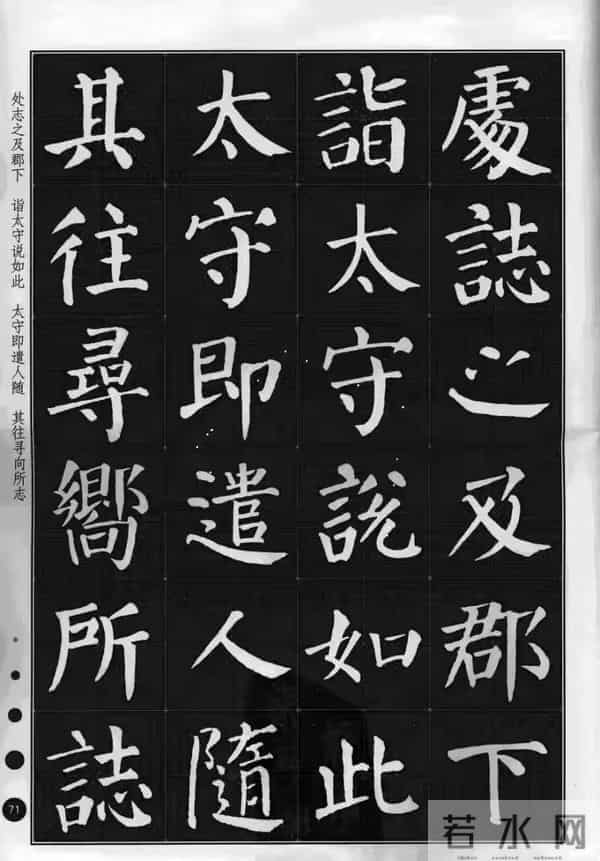 處誌之及郡下
詣太守說如此
太守即遣人隨
其往尋嚮所誌
处志之及郡下 诣太守说如此 太守即遣人随 其往寻向所志
71
若水网